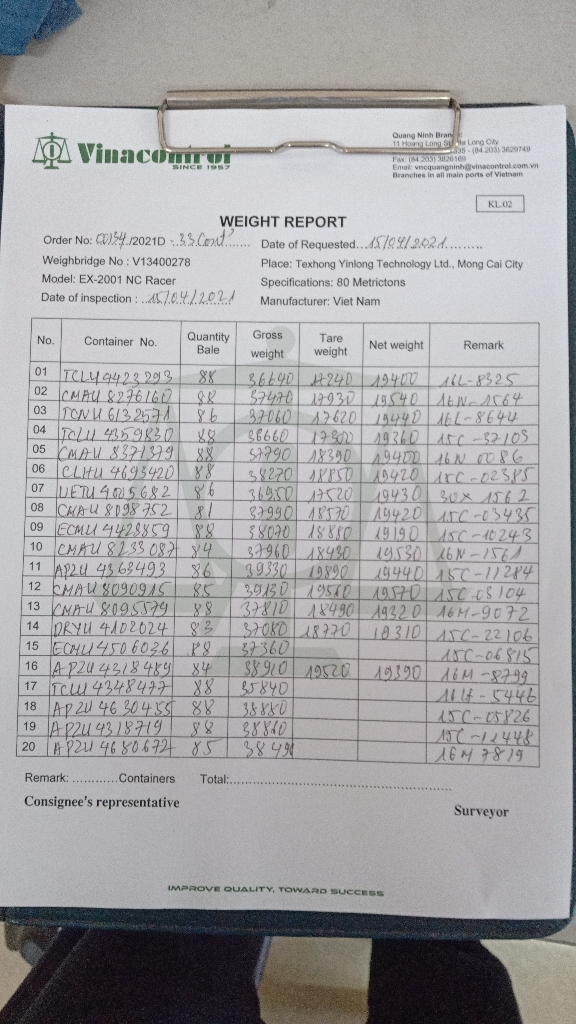 Vinacontrol
SINCE 1957
Quang Ninh Bran
11 Hoang Long St Ha Long City
(84.203) 3829749
Fax: (84.203) 3826169
Email: vncquangninh@vinacontrol.com.vn
Branches in all main ports of Vietnam
KL.02
WEIGHT REPORT
Order No: 00134/2021D - 33 Cont'
Date of Requested...15/04/2021.........
Weighbridge No : V13400278
Place: Texhong Yinlong Technology Ltd., Mong Cai City
Model: EX-2001 NC Racer
Specifications: 80 Metrictons
Date of inspection : ..15/04/2021
Manufacturer: Viet Nam
No. Container No. Quantity Bale Gross weight Tare weight Net weight Remark
01 TCLU 4423293 88 36640 17240 19400 16L-8325
02 CMAU 8276160 88 37470 17930 19540 16N-1564
03 TCNU 6132571 86 37060 17620 19440 16L-8644
04 TCLU 4359830 88 36660 17300 19360 15C-37103
05 CMAU 8371379 88 37790 18390 19400 16N 0086
06 CLHU 4693420 88 38270 18850 19420 15C-02385
07 UETU 4005682 86 36950 17520 19430 30X 1562
08 CMAU 8098752 81 37990 18570 19420 15C-03435
09 ECMU 4423859 88 38070 18880 19190 15C-10243
10 CMAU 8233087 84 37960 18430 19530 16N-1561
11 APZU 4363493 86 39330 19890 19440 15C-11284
12 CMAU 8090915 85 39130 19560 19570 15C-03104
13 CMAU 8095579 88 37810 18490 19320 16M-9072
14 DRYU 4102024 83 37080 18770 18310 15C-22106
15 ECMU 4506036 88 37360 15C-06815
16 APZU 4318489 84 38910 19520 19390 16M-8799
17 TCLU 4348477 88 35840 16H-5446
18 APZU 4630455 88 38880 15C-05826
19 APZU 4318719 88 38860 15C-12448
20 APZU 4680672 85 3849 16M 7819
Remark: ............Containers Total:......................................................
Consignee's representative
Surveyor
IMPROVE QUALITY, TOWARD SUCCESS